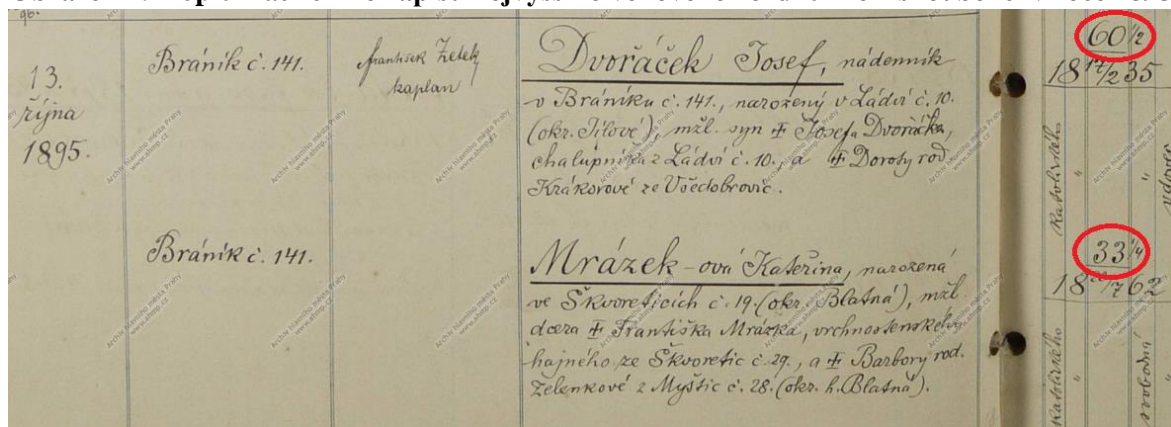 96.
13.
října
1895.
Bráník č. 141.
František Zetek
kaplan
Dvořáček Josef, nádenník
v Bráníku č. 141., narozený v Ládví č. 10.
(okr. Jílové), mžl. syn ┼ Josefa Dvořáčka,
chalupníka z Ládví č. 10., a ┼ Doroty rod.
Krákorové ze Všedobrovic.
60 1/2
18 17/2 35
Katolického
"
"
vdovec
Bráník č. 141.
Mrázek-ová Kateřina, narozená
ve Škvoreticích č. 19. (okr. Blatná), mžl.
dcera ┼ Františka Mrázka, vrchnostenského
hajného ze Škvoretic č. 29., a ┼ Barbory rod.
Zelenkové z Myštic č. 28. (okr. h. Blatná).
33 1/4
18 /7 62
Katolického
"
svobodná
"
Archiv hlavního města Prahy
www.ahmp.cz